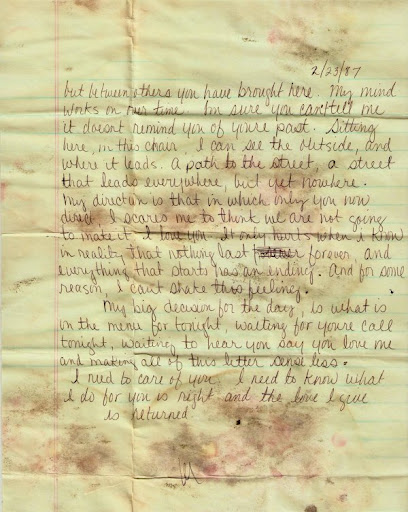 2/23/87
but between others you have brought here. My mind
works on our time. Im sure you can't tell me
it doesnt remind you of youre past. Sitting
here, in this chair I can see the outside, and
where it leads. A path to the street, a street
that leads everywhere, but yet nowhere.
My direction is that in which only you now
direct. I scares me to think we are not going
to make it. I love you. It only hurts when I know
in reality that nothing last forever, and
everything that starts has an ending. And for some
reason I cant shake this feeling.
My big decision for the day, is what is
on the menu for tonight, waiting for youre call
tonight, waiting to hear you say you love me
and making all of this letter sense less.
I need to care of you. I need to know what
I do for you is right and the love I give
is returned.